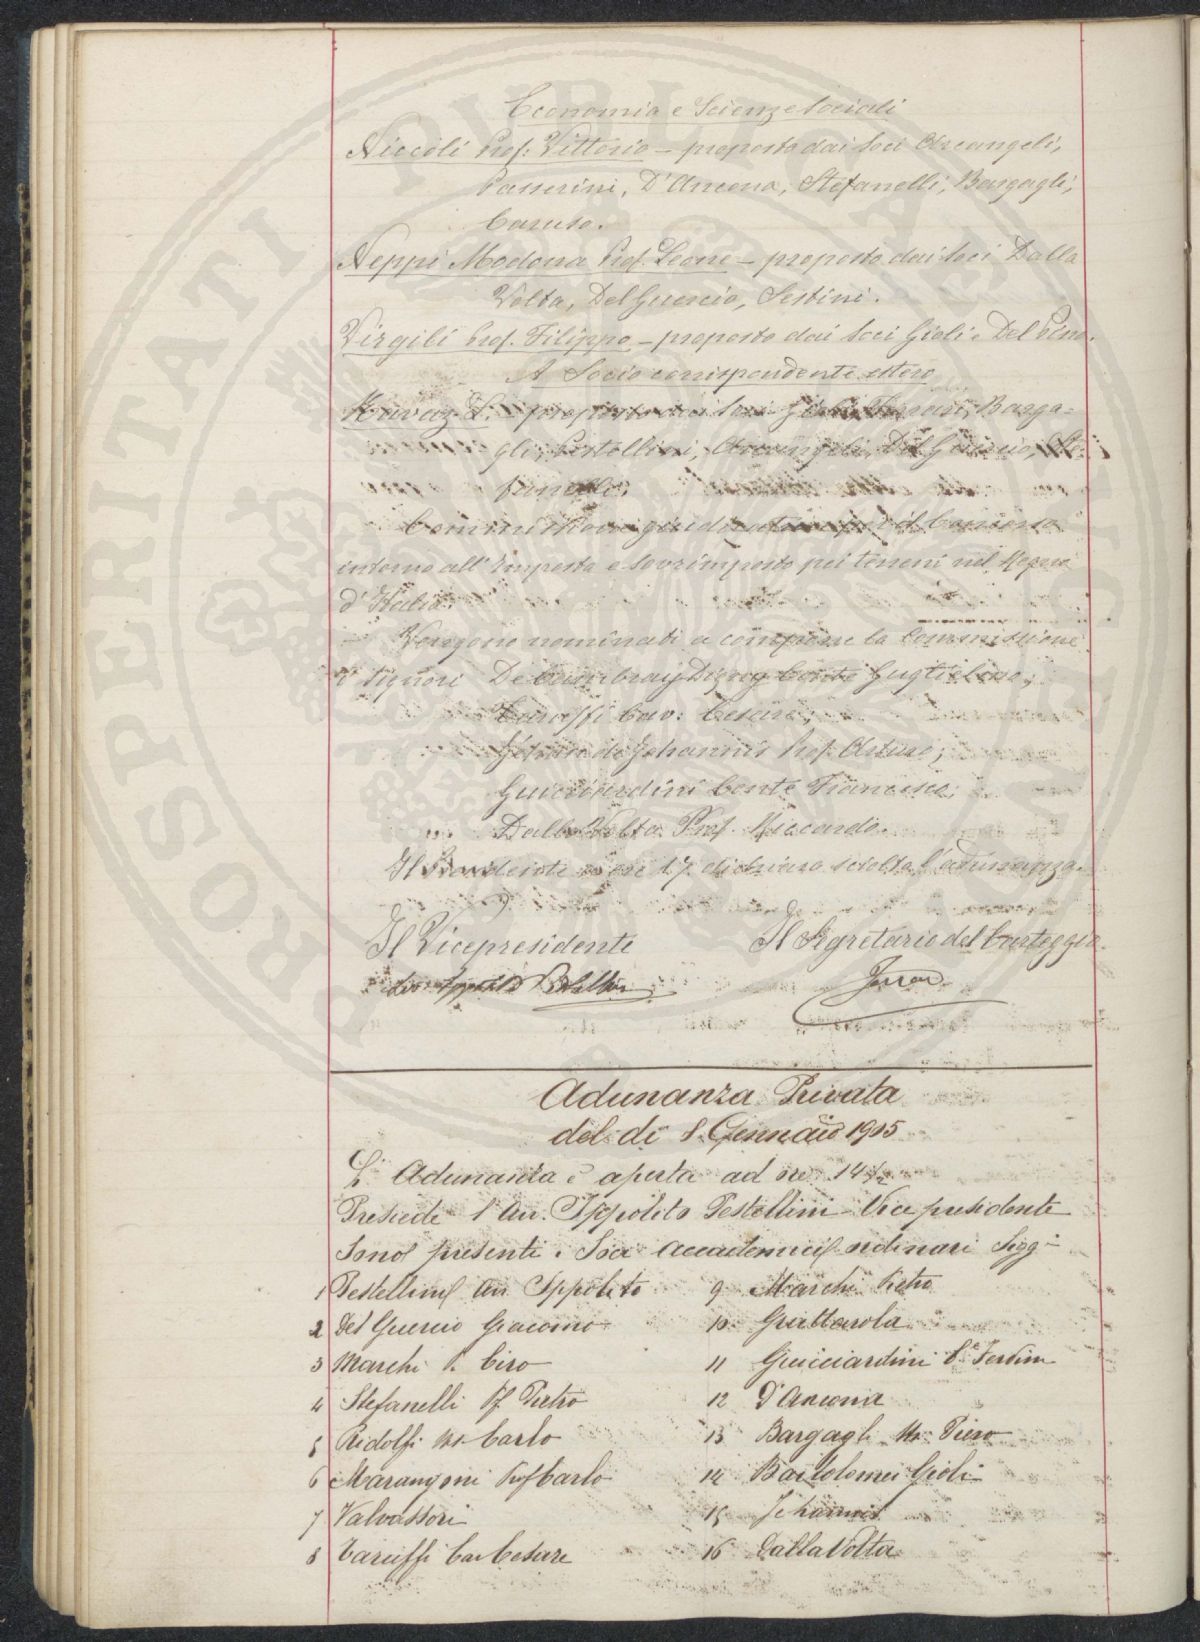 Economia e Scienze Sociali
Niccoli Prof. Vittorio – proposto dai Soci Arcangeli,
Passerini, D'Ancona, Stefanelli, Bargagli,
Caruso.
Neppi Modona Prof. Leone – proposto dai Soci Dalla
Volta, Del Guercio, Sestini.
Virgili Prof. Filippo – proposto dai Soci Gioli e Del Pero.
A Socio corrispondente estero
proposto dai Soci Gioli, Ferrari, Barga=
gli, Pestellini, Arcangeli, Del Guercio, Ste=
fanelli.
Commissione giudicatrice per il Concorso
intorno all'Imposta e Sovrimposta pei terreni nel Regno
d'Italia.
Vengono nominati a comporre la Commissione
i Signori De Cambray Digny Conte Guglielmo;
Taruffi Cav. Cesare;
de Johannis Prof. Arturo;
Guicciardini Conte Francesco;
Dalla Volta Prof. Riccardo.
Il Presidente a ore 17 dichiara sciolta l'adunanza.
Il Vicepresidente Il Segretario del Carteggio
Pestellini
Adunanza Privata
del dì 8 Gennaio 1905
L'Adunanza è aperta ad ore 14 1/2
Presiede l'Avv. Ippolito Pestellini Vice presidente
Sono presenti i Soci accademici ordinari Sigg.i
1 Pestellini Avv. Ippolito 9 Marchi Pietro
2 Del Guercio Giacomo 10 Grattarola
3 Marchi P. Ciro 11 Guicciardini Cte Ferdin
4 Stefanelli Pf Pietro 12 D'Ancona
5 Ridolfi Mse Carlo 13 Bargagli Mse Piero
6 Marangoni Prof Carlo 14 Bartolomei Gioli
7 Valvassori 15 Jehannis
8 Taruffi Cav Cesare 16 Dalla Volta
PROSPERITATI PUBLICAE